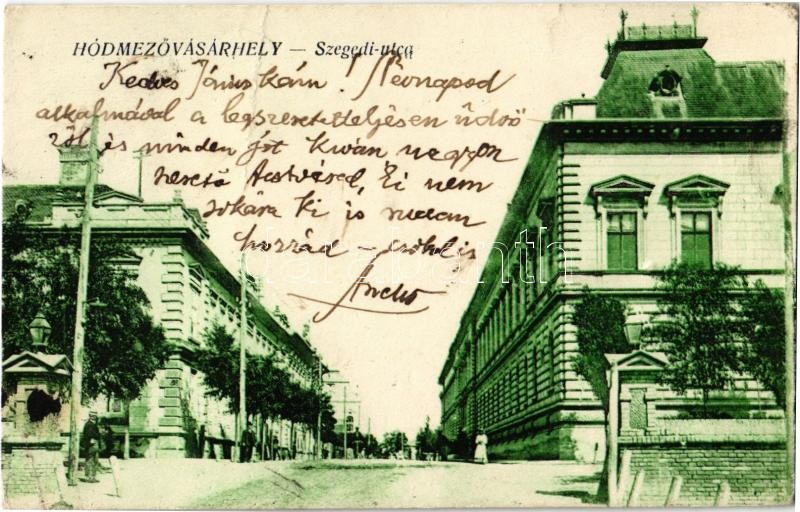 HÓDMEZŐVÁSÁRHELY — Szegedi-utca
Kedves Jánuskám! Névnapod
alkalmával a legszeretetteljésen üdvö
zöl és minden jót kiván nagyon
szerető Testvéred, Ki nem
sokára ki is rucan
hozzád – csókol is